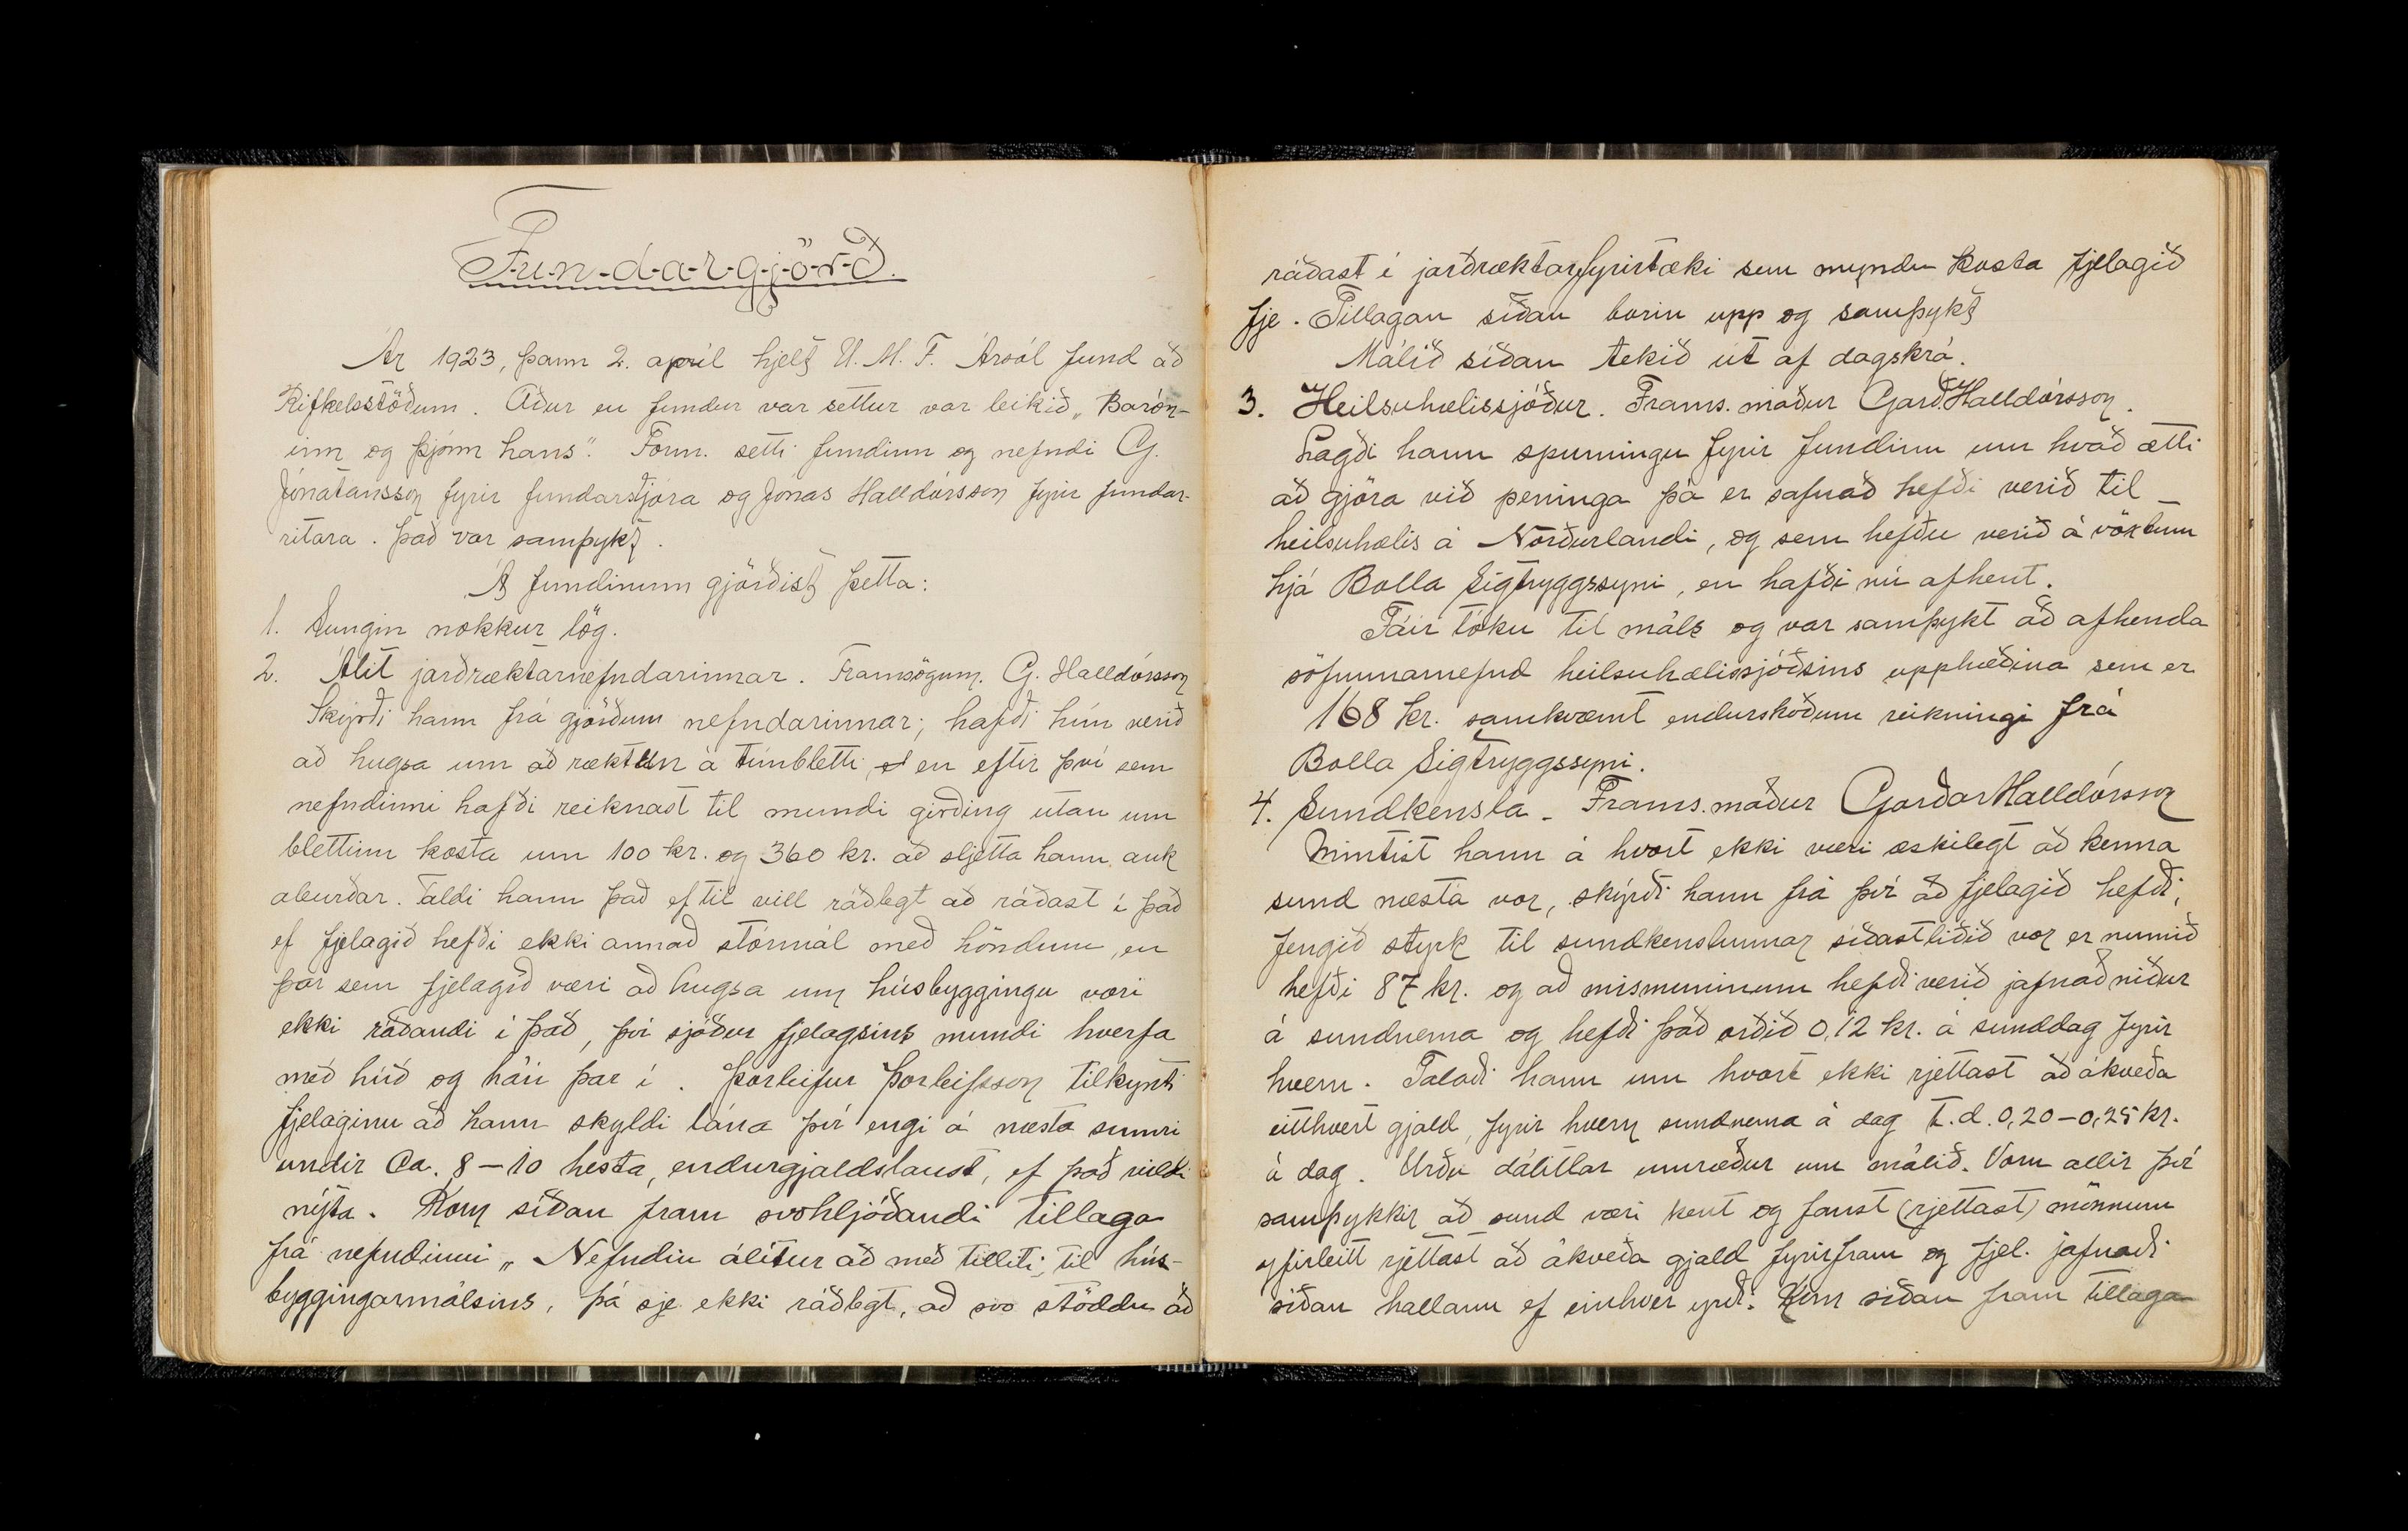 Fun-d-a-r-g-j-ö-r-ð.
Ár 1923, þann 2. apríl hjelt U.M.F. Ársól fund að
Rifkelsstöðum. Áður en fundur var settur var leikið „Barón-
inn og þjónn hans". Form. setti fundinn og nefndi G.
Jónatansson fyrir fundarstjóra og Jónas Halldórsson fyrir fundar-
ritara. Það var samþykt.
Á fundinum gjörðist þetta:
1. Sungin nokkur lög.
2. Álit jarðræktarnefndarinnar. Framsögum. G. Halldórsson
Skýrði hann frá gjörðum nefndarinnar; hafði hún verið
að hugsa um að ræktun á túnbletti, en eftir því sem
nefndinni hafði reiknast til mundi girðing utan um
blettinn kosta um 100 kr. og 360 kr. að sljetta hann auk
áburðar. Taldi hann það ef til vill ráðlegt að ráðast í það
ef fjelagið hefði ekki annað stórmál með höndum, en
þar sem fjelagið væri að hugsa um húsbyggingu væri
ekki ráðandi í það, því sjóður fjelagsins mundi hverfa
með húð og hári þar í. Þorleifur Þorleifsson tilkynti
fjelaginu að hann skyldi lána því engi á næsta sumri
undir Ca. 8-10 hesta, endurgjaldslaust, ef það vildi
nýta. Kom síðan fram svohljóðandi tillaga
frá nefndinni „Nefndin álítur að með tilliti til hús-
byggingarmálsins, þá sje ekki ráðlegt, að svo stöddu að
ráðast í jarðræktarfyrirtæki sem myndu kosta fjelagið
fje. Tillagan síðan borin upp og samþykt
Málið síðan tekið út af dagskrá.
3. Heilsuhælissjóður. Frams. maður Garð. Halldórsson.
Lagði hann spurningu fyrir fundinn um hvað ætti
að gjöra við peninga þá er safnað hefði verið til
heilsuhælis á Norðurlandi, og sem hefðu verið á vöxtum
hjá Bolla Sigtryggssyni, en hafði nú afhent.
Fáir tóku til máls og var samþykt að afhenda
söfnunarnefnd heilsuhælissjóðsins upphæðina sem er
168 kr. samkvæmt endurskoðum reikningi frá
Bolla Sigtryggssyni.
4. Sundkensla - Frams. maður Garðar Halldórsson
Mintist hann á hvort ekki væri æskilegt að kenna
sund næsta vor, skýrði hann frá því að fjelagið hefði,
fengið styrk til sundkenslunnar síðastliðið vor er numið
hefði 87 kr. og að mismuninum hefði verið jafnað niður
á sundnema og hefði það orðið 0,12 kr. á sunddag fyrir
hvern. Talaði hann um hvort ekki rjettast að ákveða
eitthvert gjald, fyrir hvern sundnema á dag t.d. 0,20-0,25 kr.
á dag. Urðu dálitlar umræður um málið. Voru allir því
samþykkir að sund væri kent og fanst (rjettast) mönnum
yfirleitt rjettast að ákveða gjald fyrirfram og fjel. jafnaði
síðan hallann ef einhver yrði. Kom síðan fram tillaga